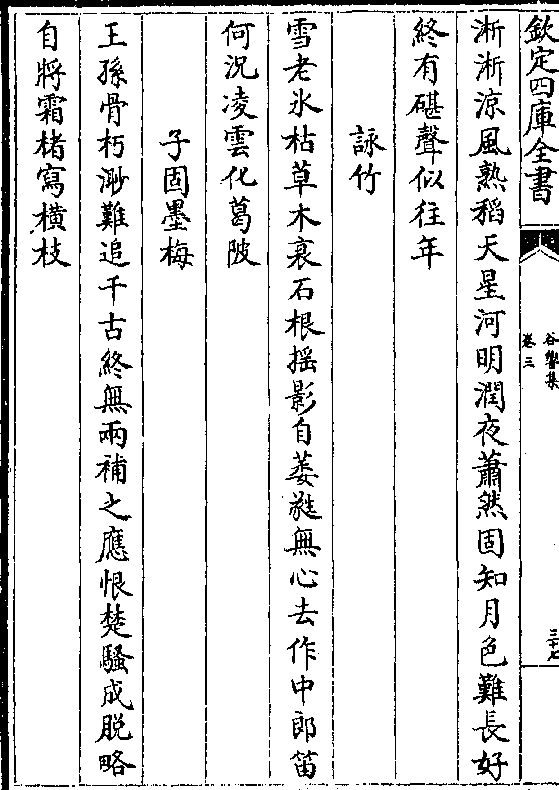 欽定四庫全書
谷響集
卷三
三十七
淅淅涼風熟稻天星河明潤夜蕭然固知月色難長好
終有碪聲似往年
詠竹
雪老氷枯草木衰石根揺影自萎蕤無心去作中郎笛
何況凌雲化葛陂
子固墨梅
王孫骨朽渺難追千古終無兩補之應恨楚騷成脱略
自將霜楮寫橫枝